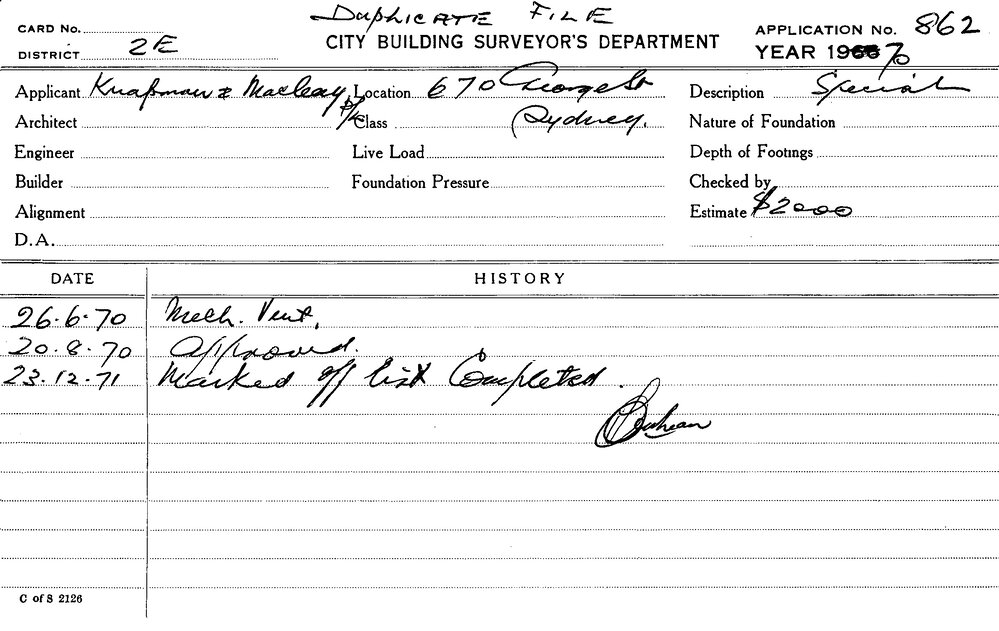 DUPLICATE FILE
CARD No.
CITY BUILDING SURVEYOR'S DEPARTMENT
APPLICATION No. 862
DISTRICT 2E
YEAR 196670
Applicant Knapman & Macleay P/L
Location 670 George St
Description Special
Architect
Class Sydney.
Nature of Foundation
Engineer
Live Load
Depth of Footings
Builder
Foundation Pressure
Checked by
Alignment
Estimate $2000
D.A.
DATE HISTORY
26.6.70 Mech. Vent.
20.8.70 Approved.
23.12.71 Marked off list Completed.
C of S 2126